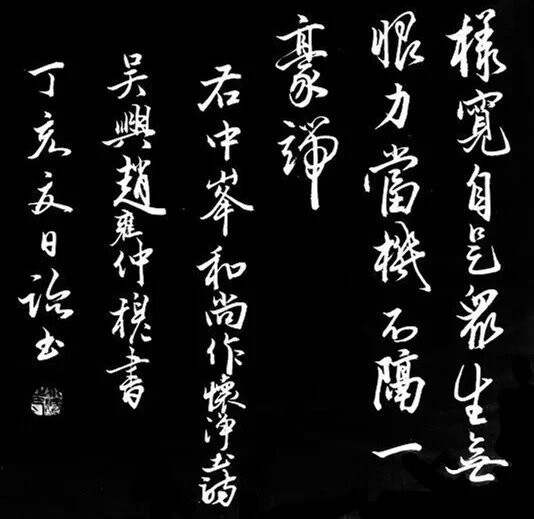 樣寬自是眾生無
眼力當機不隔一
豪端
右中峯和尚作懷淨土詩
吳興趙雍仲穆書
丁亥夏日臨古